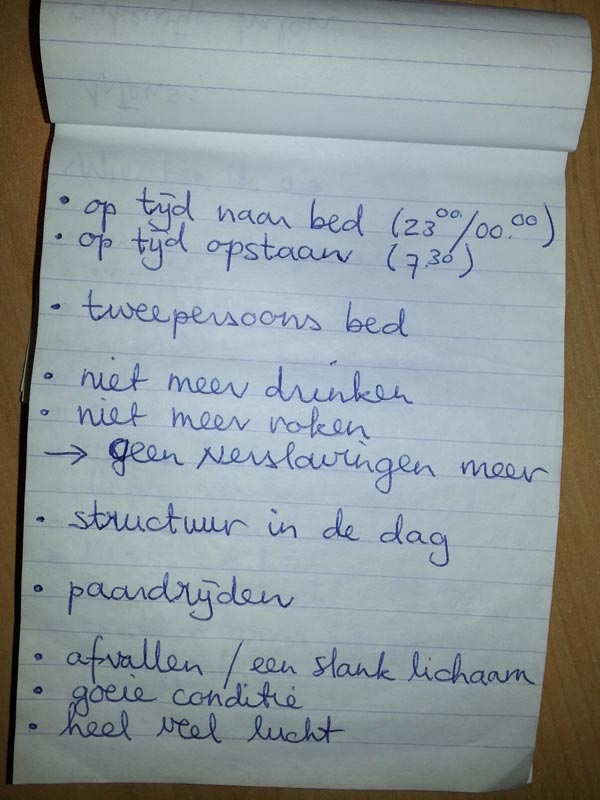 • op tijd naar bed (23⁰⁰/00.⁰⁰)
• op tijd opstaan (7.³⁰)
• tweepersoons bed
• niet meer drinken
• niet meer roken
→ geen verslavingen meer
• structuur in de dag
• paardrijden
• afvallen / een slank lichaam
• goeie conditie
• heel veel lucht